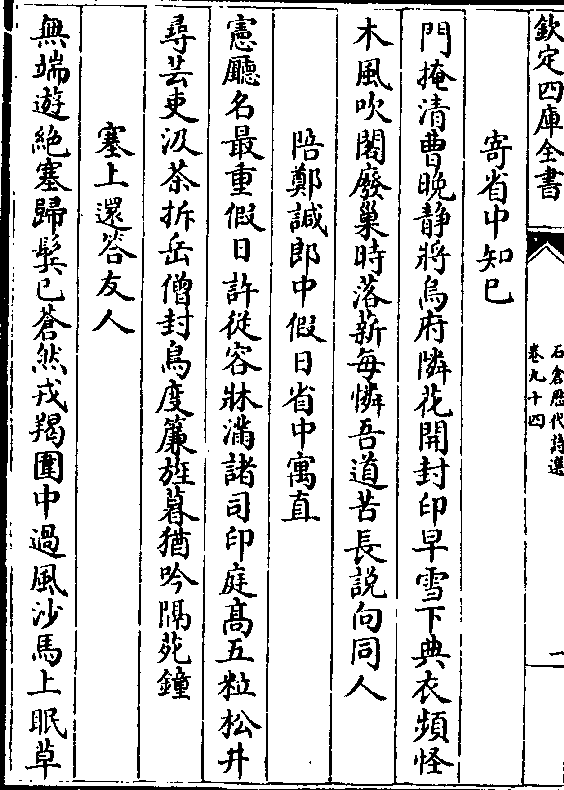 欽定四庫全書
石倉歴代詩選
卷九十四
一
寄省中知已
門掩清曹晚静將烏府隣花開封印早雪下典衣頻怪
木風吹閣廢巢時落薪每憐吾道苦長説向同人
陪鄭諴郎中假日省中寓直
憲廳名最重假日許從容牀滿諸司印庭髙五粒松井
尋芸吏汲茶拆岳僧封鳥度簾旌暮猶吟隔苑鐘
塞上還答友人
無端遊絶塞歸鬂已蒼然戎羯圍中過風沙馬上眠草